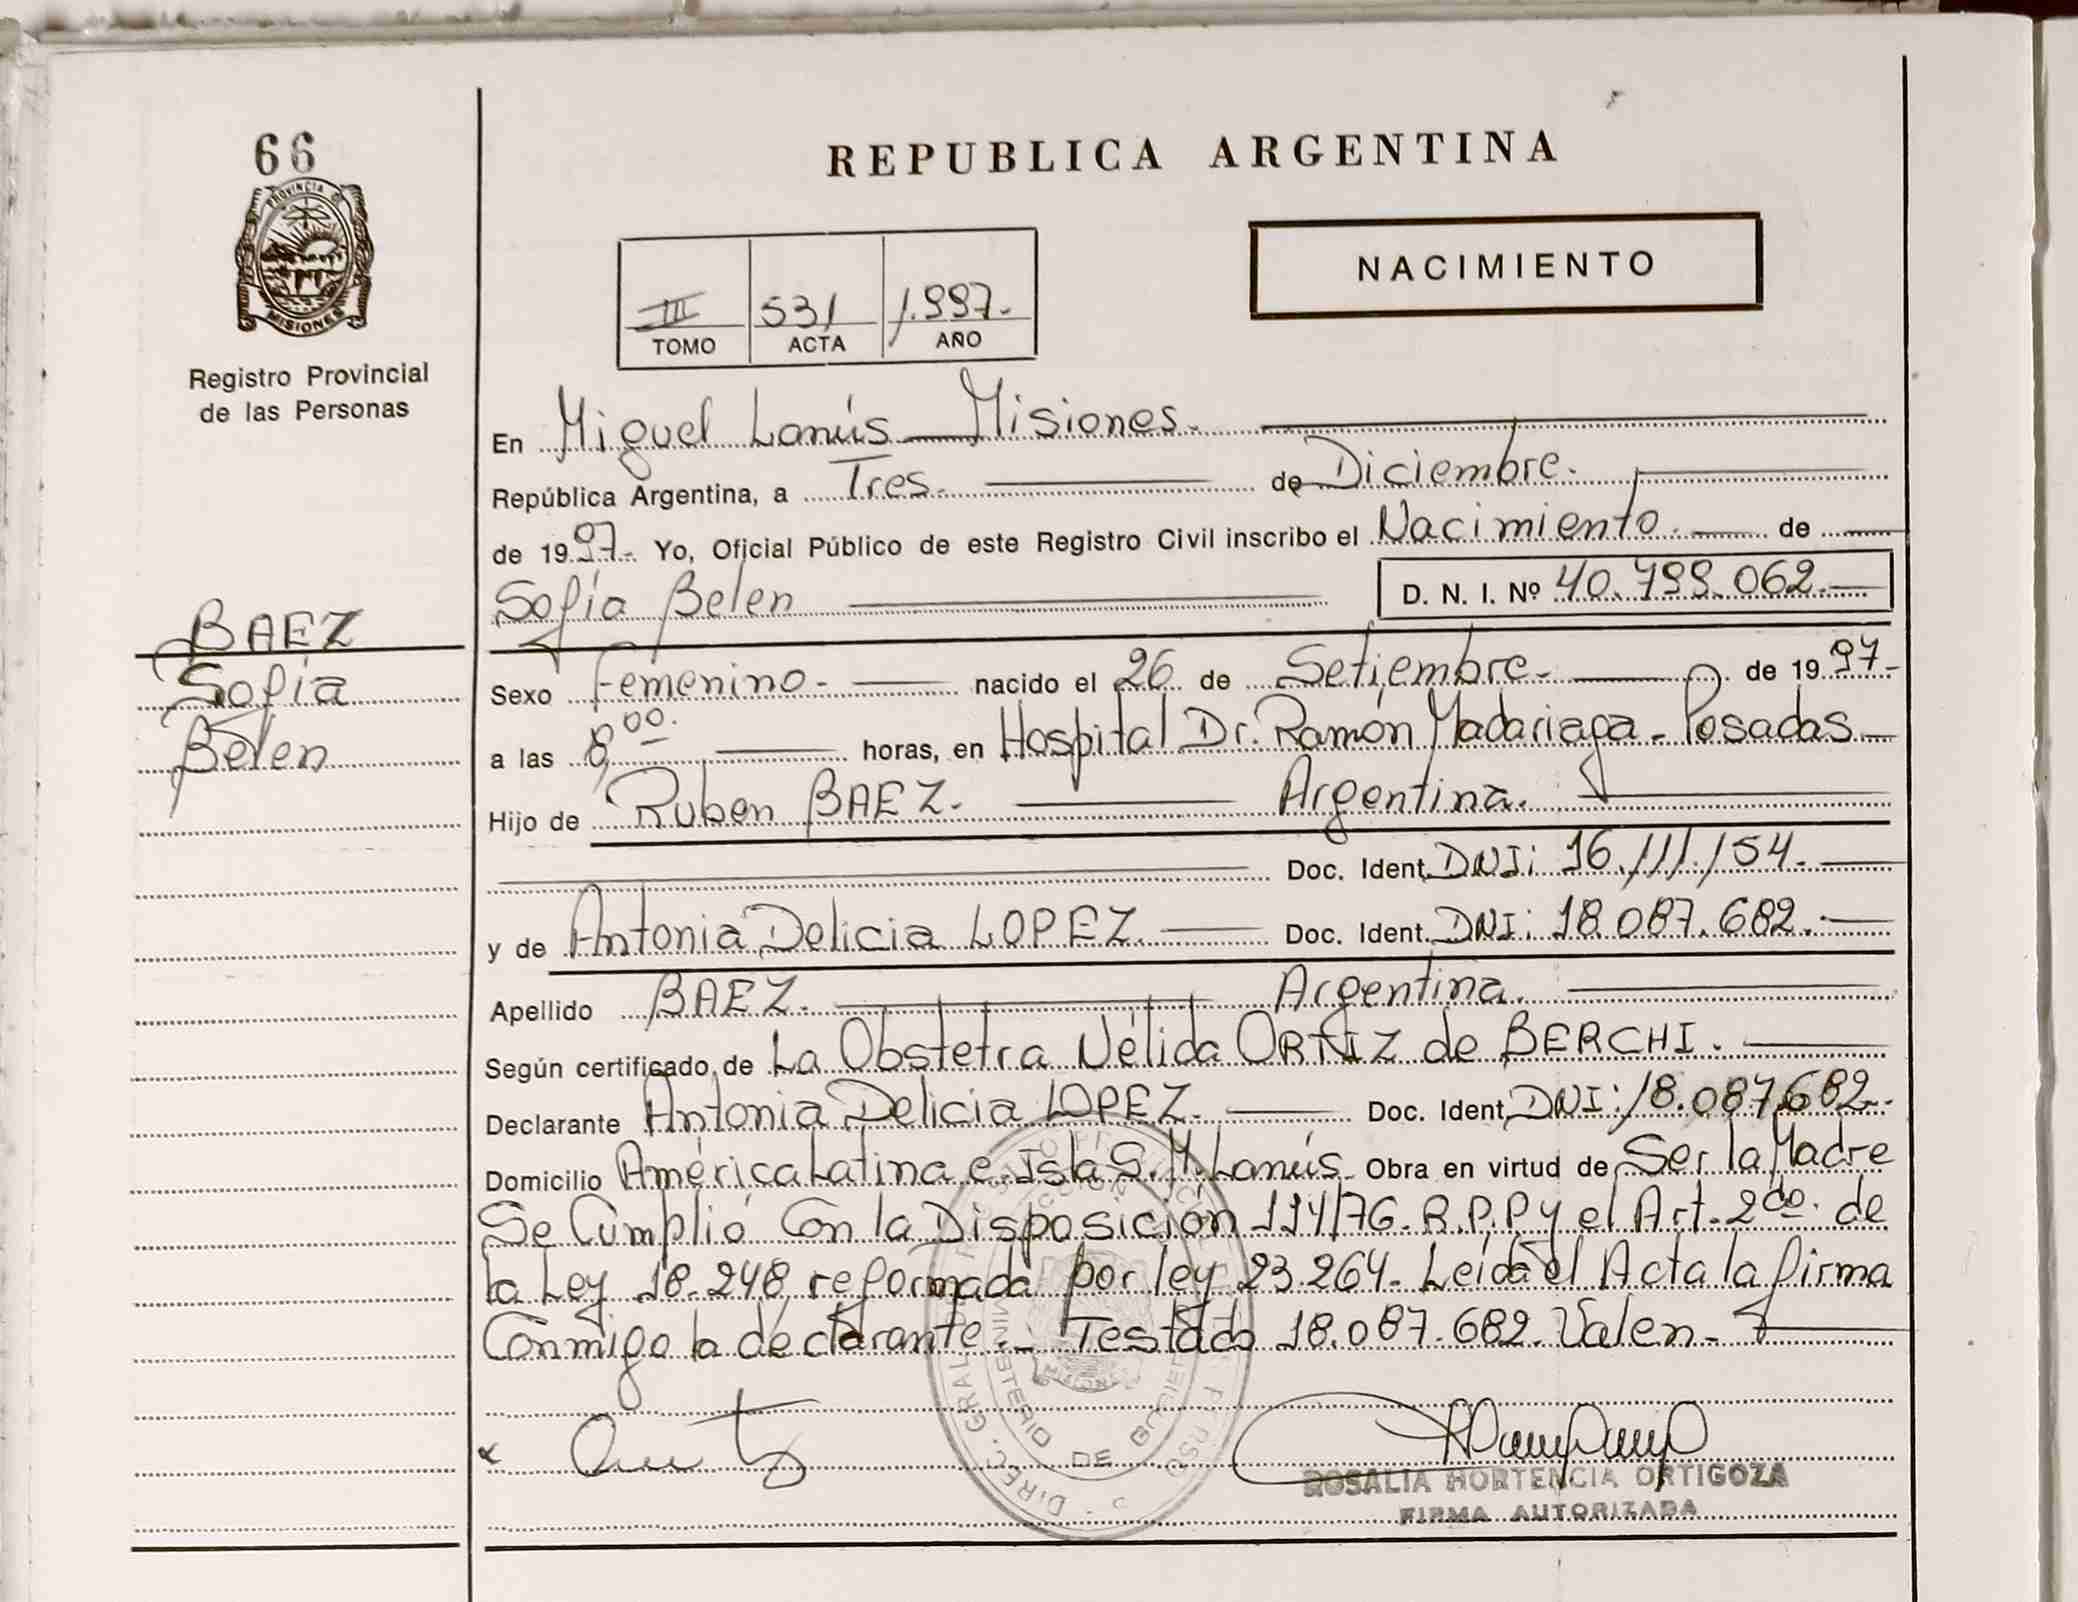 66
PROVINCIA DE
MISIONES
Registro Provincial
de las Personas
BAEZ
Sofía
Belen
REPUBLICA ARGENTINA
NACIMIENTO
III 531 1.997.-
TOMO ACTA AÑO
En Miguel Lanús - Misiones.
República Argentina, a Tres. de Diciembre.
de 1997.- Yo, Oficial Público de este Registro Civil inscribo el Nacimiento. de
Sofía Belen D. N. I. Nº 40.799.062.-
Sexo Femenino. nacido el 26 de Setiembre. de 1997.-
a las 8,00. horas, en Hospital Dr. Ramón Madariaga - Posadas
Hijo de Ruben BAEZ. Argentina.
Doc. Ident. DNI: 16.111.154.
y de Antonia Delicia LOPEZ. Doc. Ident. DNI: 18.087.682.
Apellido BAEZ. Argentina.
Según certificado de La Obstetra Nélida ORTIZ de BERCHI.
Declarante Antonia Delicia LOPEZ. Doc. Ident. DNI: 18.087.682.
Domicilio América Latina e Islas M. Lanús Obra en virtud de Ser la Madre
Se Cumplió Con la Disposición 114/76. R.P.P y el Art. 2do. de
la Ley 18.248 reformada por ley 23.264. Leída el Acta la firma
Conmigo la declarante.- Testado 18.087.682. Valen.-
DIREC. GRAL.
MINISTERIO DE
ROSALIA HORTENCIA ORTIGOZA
FIRMA AUTORIZADA